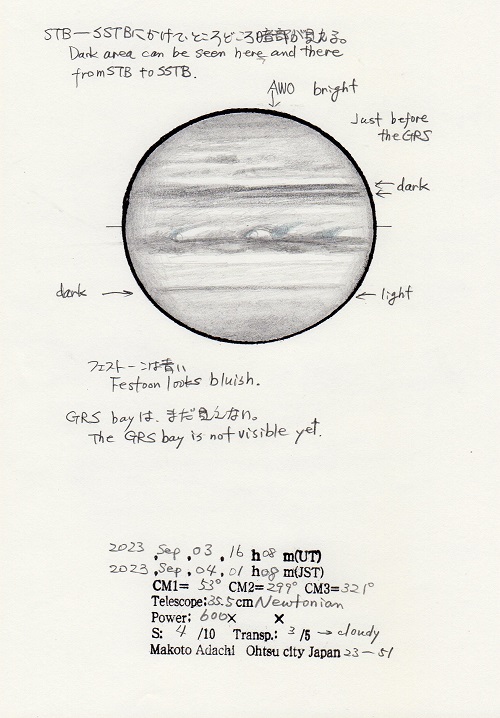 STB─SSTBにかけてところどころ暗部が見える。
Dark area can be seen here and there
from STB to SSTB.
AWO bright
Just before
the GRS
dark
dark
light
フェストーンは青い
Festoon looks bluish.
GRS bayは、まだ見えない。
The GRS bay is not visible yet.
2023 ,Sep ,03 ,16 h 08 m(UT)
2023 ,Sep ,04 ,01 h 08 m(JST)
CM1= 53° CM2= 299° CM3= 321°
Telescope:35.5cm Newtonian
Power: 600× ×
S: 4 /10 Transp.: 3 /5 → cloudy
Makoto Adachi Ohtsu city Japan 23-51